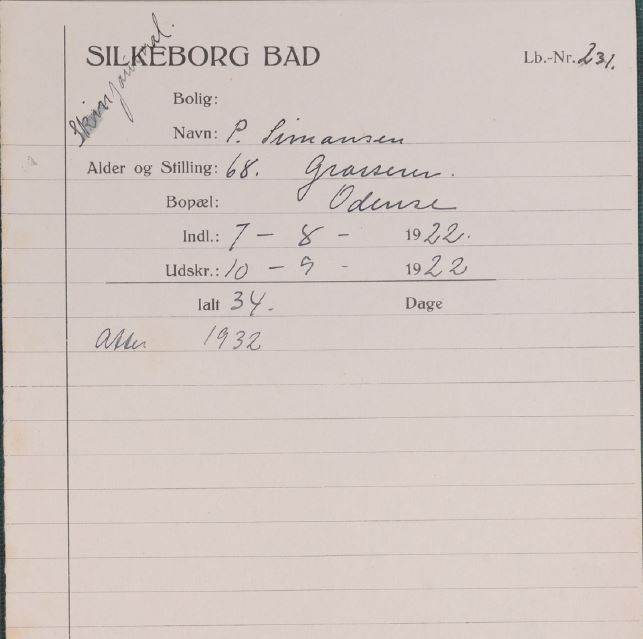 SILKEBORG BAD
Lb.-Nr. 231.
Bolig:
Navn: P. Simonsen
Alder og Stilling: 68. Grosserer.
Bopæl: Odense
Indl.: 7 - 8 - 1922.
Udskr.: 10 - 9 - 1922
Ialt 34. Dage
Atter 1932